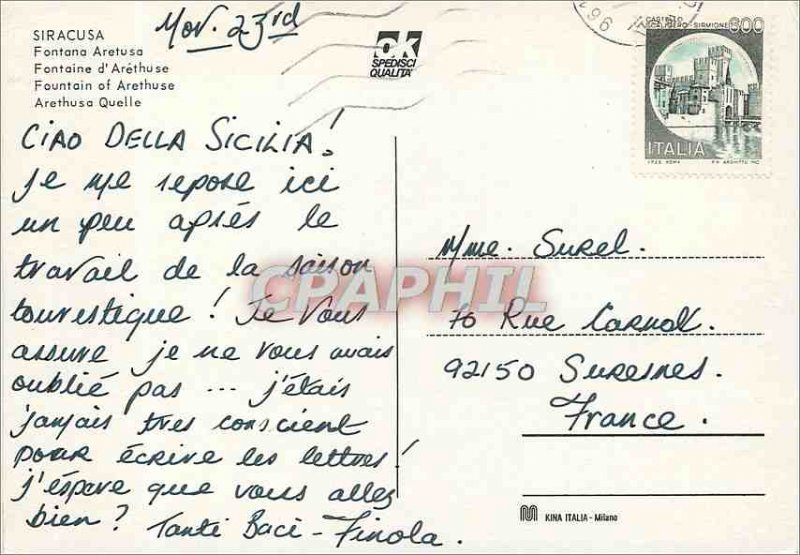 SIRACUSA
Fontana Aretusa
Fontaine d'Aréthuse
Fountain of Arethuse
Arethusa Quelle
Nov. 23rd
OK
SPEDISCI
QUALITA'
CASTELLO
SCALIGERO - SIRMIONE
800
ITALIA
CIAO DELLA SICILIA!
je me repose ici
un peu après le
travail de la saison
tourestique! Je vous
assure je ne vous avais
oublié pas ... j'étais
jamais tres conscient
pour écrire les lettres!
j'éspere que vous allez
bien? Tanti Baci - Finola.
Mme. Surel.
70 Rue Carnot.
92150 Suresnes.
France.
CPAPHIL
KINA ITALIA - Milano